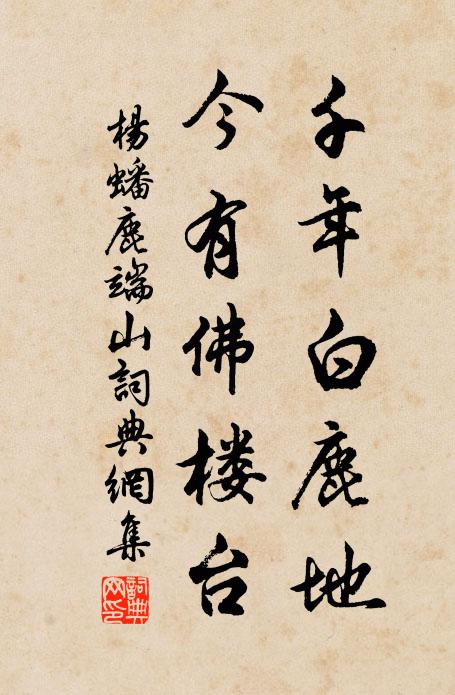 千年白鹿地
今有佛楼台
楊蟠鹿端山詞典網集
詞典网印